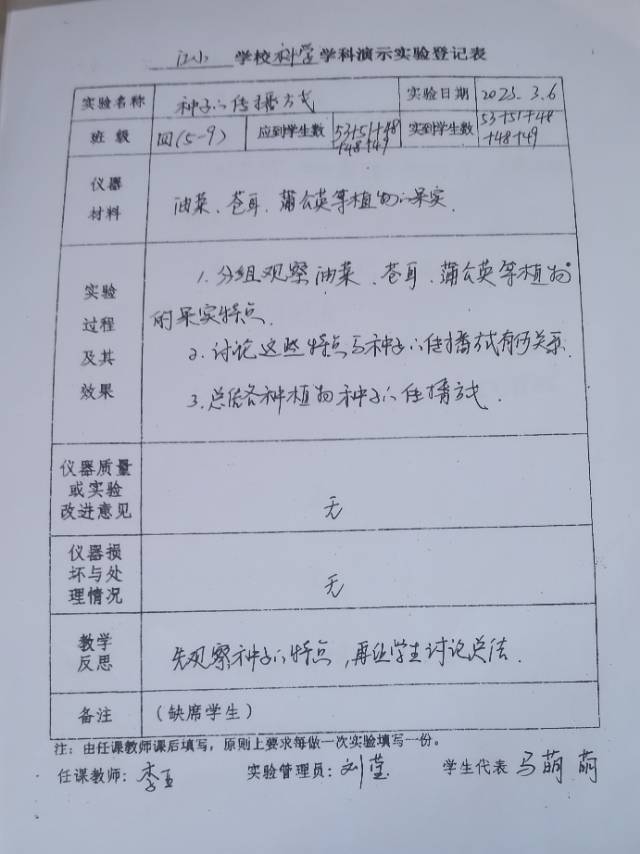 江小 学校 科学 学科演示实验登记表
实验名称 种子的传播方式 实验日期 2023.3.6
班级 四(5-9) 应到学生数 53+51+48+48+49 实到学生数 53+51+48+48+49
仪器材料 油菜、苍耳、蒲公英等植物的果实.
实验过程及其效果 1.分组观察油菜、苍耳、蒲公英等植物
的果实特点.
2.讨论这些特点与种子的传播方式有何关系.
3.总结各种植物种子的传播方式.
仪器质量或实验改进意见 无
仪器损坏与处理情况 无
教学反思 先观察种子的特点,再让学生讨论总结.
备注 (缺席学生)
注:由任课教师课后填写,原则上要求每做一次实验填写一份。
任课教师: 李 实验管理员: 刘莹 学生代表 马萌萌